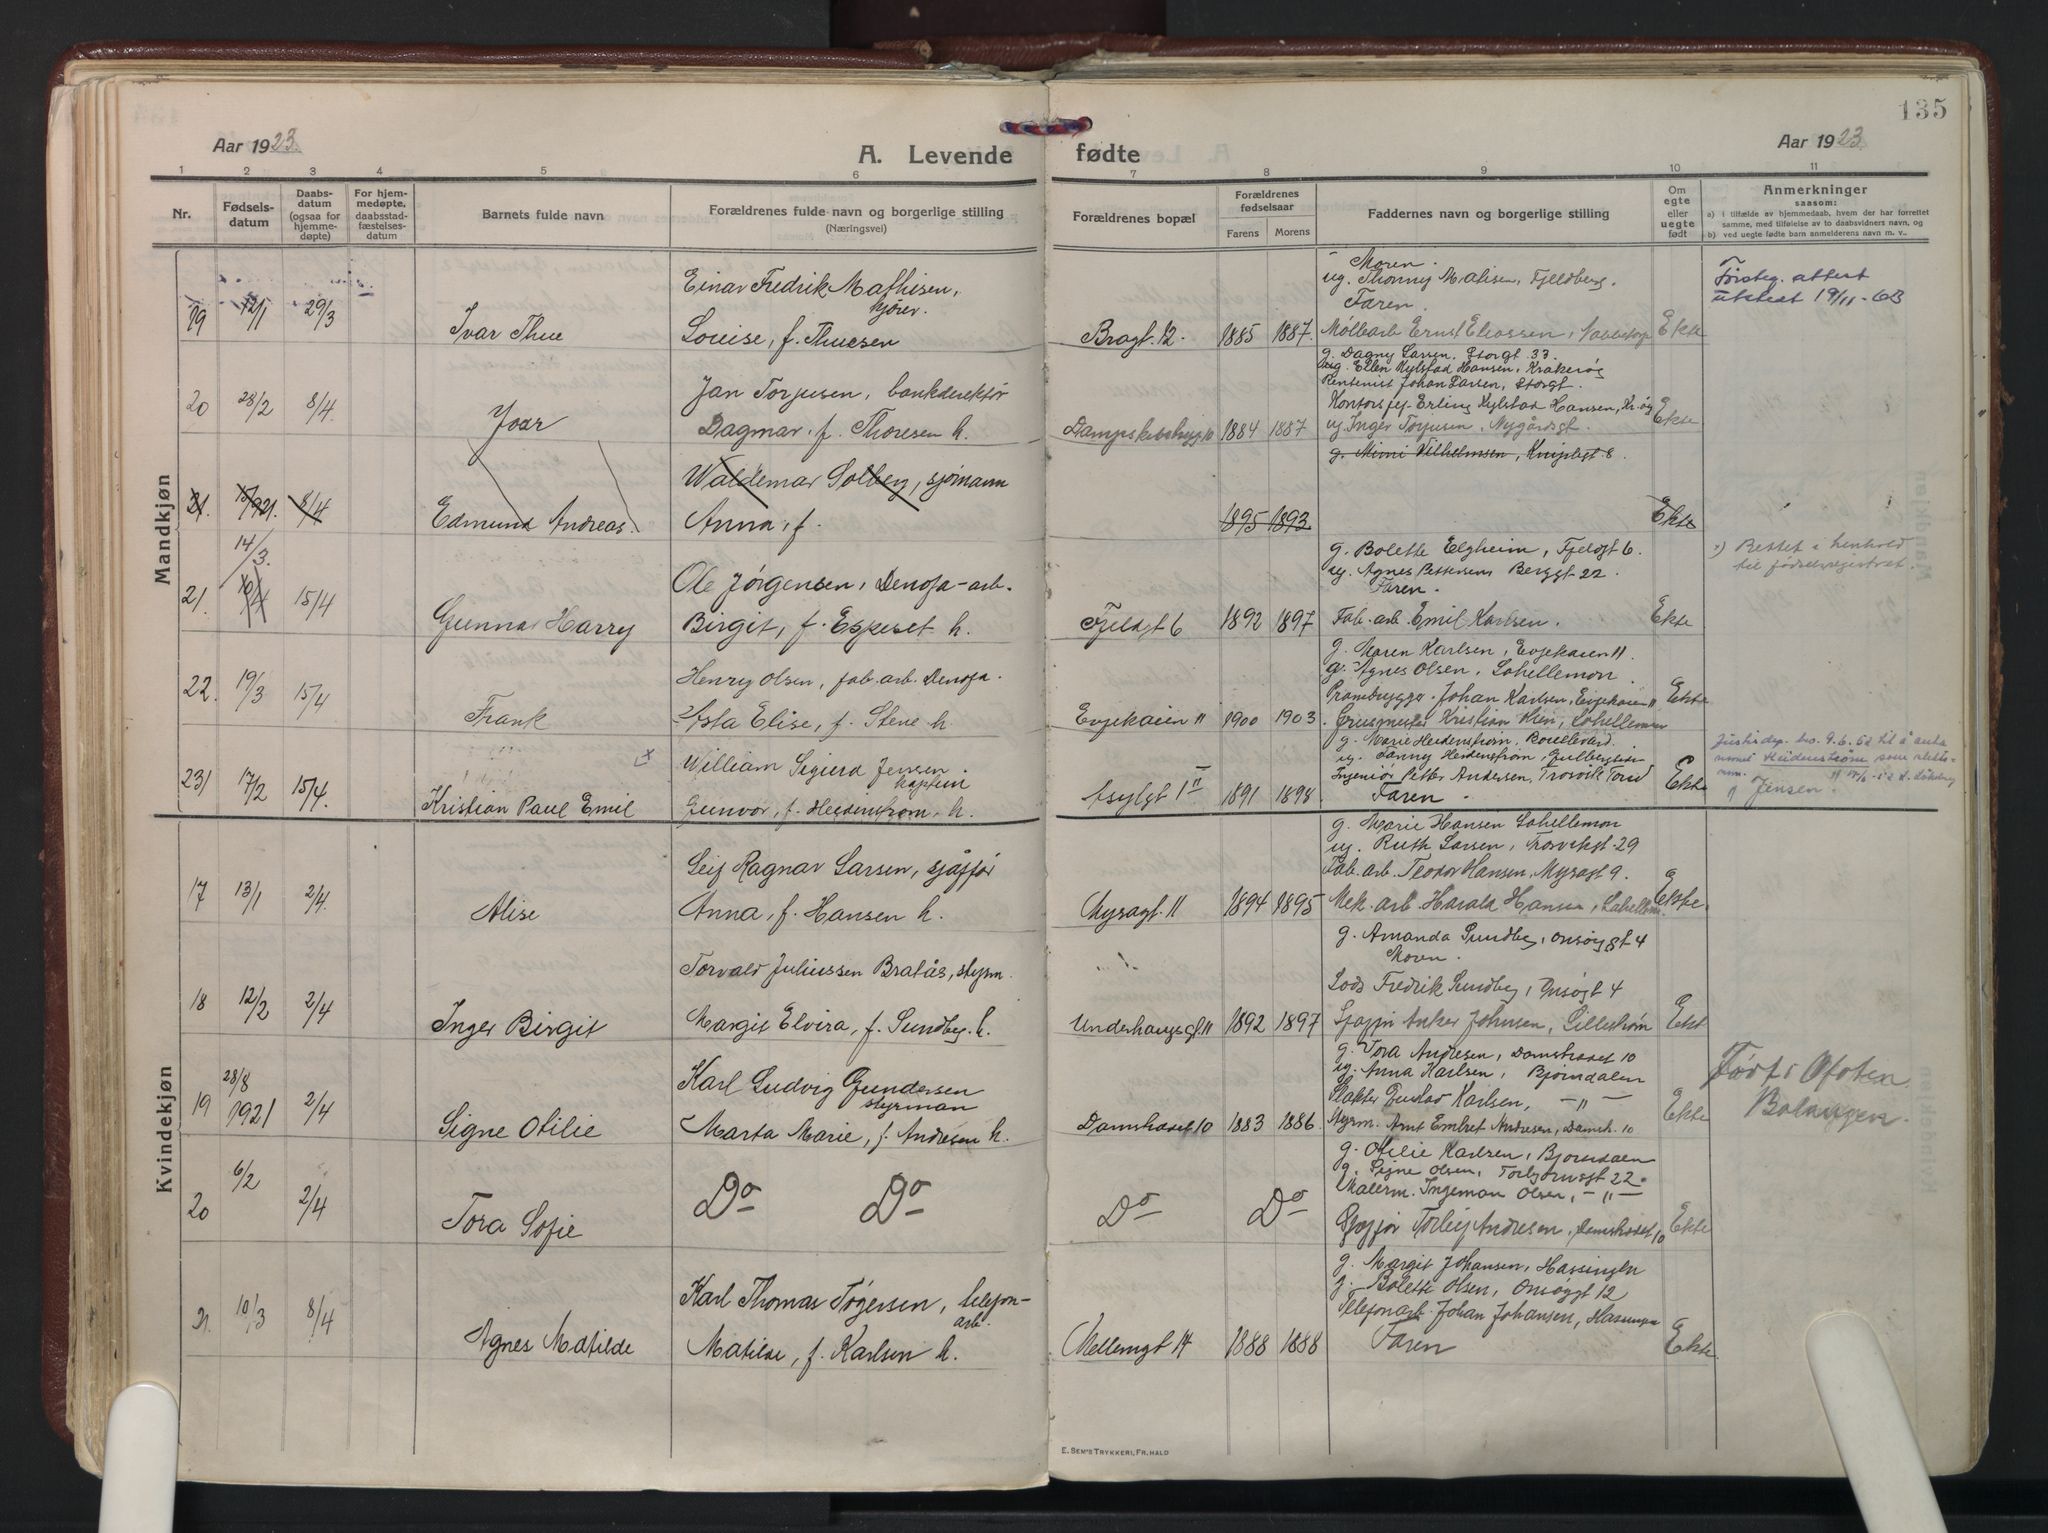 135
Aar 1923.
A. Levende fødte
Aar 1923.
1 2 3 4 5 6 7 8 9 10 11
Nr.
Fødsels-
datum
Daabs-
datum
(ogsaa for
hjemme-
døpte)
For hjem-
medøpte,
daabsstad-
fæstelses-
datum
Barnets fulde navn
Forældrenes fulde navn og borgerlige stilling
(Næringsvei)
Forældrenes bopæl
Forældrenes
fødselsaar
Farens
Morens
Faddernes navn og borgerlige stilling
Om
egte
eller
uegte
født
Anmerkninger
saasom:
a) i tilfælde av hjemmedaab, hvem der har forrettet
samme, med tilføielse av to daabsvidners navn, og
b) ved uegte fødte barn anmelderens navn m. v..
Mandkjøn
19 12/1 29/3 Ivar Thue
Einar Fredrik Mathisen,
kjører.
Louise, f. Thuesen
Bragt. 12. 1885 1887.
Moren.
ug. Thonny Matisen, Fjeldberg.
Faren.
Mølbarb Ernst Eliassen,
Ekte
Førsteg. attest
utstedt 19/11-63
20 28/2 8/4 Ivar
Jan Torjusen, bankdirektør
Dagmar, f. Thoresen h.
Dampskibsbryg 10 1884 1887
g. Dagny Larsen, Storgt. 33.
ug. Ellen Kylstad Hansen, Krakerøy
Rentenist Johan Larsen, Storgt.
Kontorsjef Erling Kylstad Hansen, Kr.øy
ug. Inger Torjusen, Nygårdsgt.
Ekte
21. 15/921. 8/4 Edmund Andreas.
Waldemar Solberg, sjømann
Anna, f.
1895 1893
g. Mimi Vilhelmsen, Knipligt 8.
Ekte
21. 14/3. 10/4 15/4 Gunnar Harry
Ole Jørgensen, Denofa-arb.
Birgit, f. Espeset h.
Fjeldgt 6 1892 1897
g. Bolette Elgheim, Fjeldgt 6.
ug. Agnes Pettersens Berggt 22
Faren.
Fab. arb. Emil Karlsen.
Ekte
Rettet i henhold
til fødselsregistret.
22. 19/3 15/4 Frank
Henry Olsen, fab. arb. Denofa.
Asta Elise, f. Stene h
Evjekaien 11 1900 1903.
g. Maren Karlsen, Evjekaien 11.
g. Agnes Olsen, Lahellemon
Prambrygge. Johan Karlsen, Evjekaien 11
Grusmester Kristian Moen, Lahellemon
Ekte
23) 17/2 15/4. Kristian Paul Emil
William Sigurd Jensen
kaptein
Gunvor, f. Heidenstrøm, h.
Asylgt 1 II 1891 1898
g. Marie Heidenstrøm, Boulevard.
ug. Fanny Heidenstrøm,
Ingeniør Petter Andersen, Trosvik
Faren.
Ekte
Justisdep. bev. 9.6.62 til å anta
navnet Heidenstrøm som slekts-
navn.
Jensen.
Kvindekjøn
17 13/1 2/4. Alise
Leif Ragnar Larsen, sjåfør
Anna, f. Hansen h.
Myragt. 11 1894 1895
g. Marie Hansen Lahellemon
ug. Ruth Larsen, Trosvikgt. 29
Fab. arb. Teodor Hansen, Myragt 9.
Mek. arb. Harald Hansen, Lahellem.
Ekte.
18 12/2 2/4 Inger Birgit
Torvald Juliussen Bratås, styrm.
Margit Elvira, f. Sundbg. h.
Underhaugsgt. 11 1892 1897
g. Amanda Sundbg, Onsøygt 4
Moren.
Lods Fredrik Sundbg, Onsøgt 4
Sjåfør Anker Johnsen, Lillestrøm
Ekt
19 28/8 1921 2/4 Signe Otilie
Karl Ludvig Gundersen
styrman
Marta Marie, f. Andresen h.
Damstrædet 10 1883 1886
g. Tora Andresen, Damstrædet 10
ug. Anna Karlsen, Bjørndalen
Slakter Gustav Karlsen, – " –
Styrm. Arnt Embret Andresen, Damsh. 10
Ekte
Født i Ofoten
Balangen.
20 6/2 2/4 Tora Sofie
Do Do
Do Do
g. Otilie Karlsen, Bjørndalen
g. Signe Olsen, Torbjørnsgt 22.
Malerm. Ingeman Olsen, – " –
Sjåfør Torleif Andresen, Damstrædet 10
Ekte
21. 10/3 8/4 Agnes Matilde
Karl Thomas Tøgersen, telefon-
arb.
Matilde, f. Karlsen h.
Mellemgt 14 1888 1888
g. Margit Johansen, Hassingen
g. Bolette Olsen, Onsøygt 12
Telefonarb. Johan Johansen, Hassingen
Faren
Ekte.
E. SEM'S TRYKKERI, FR.HALD